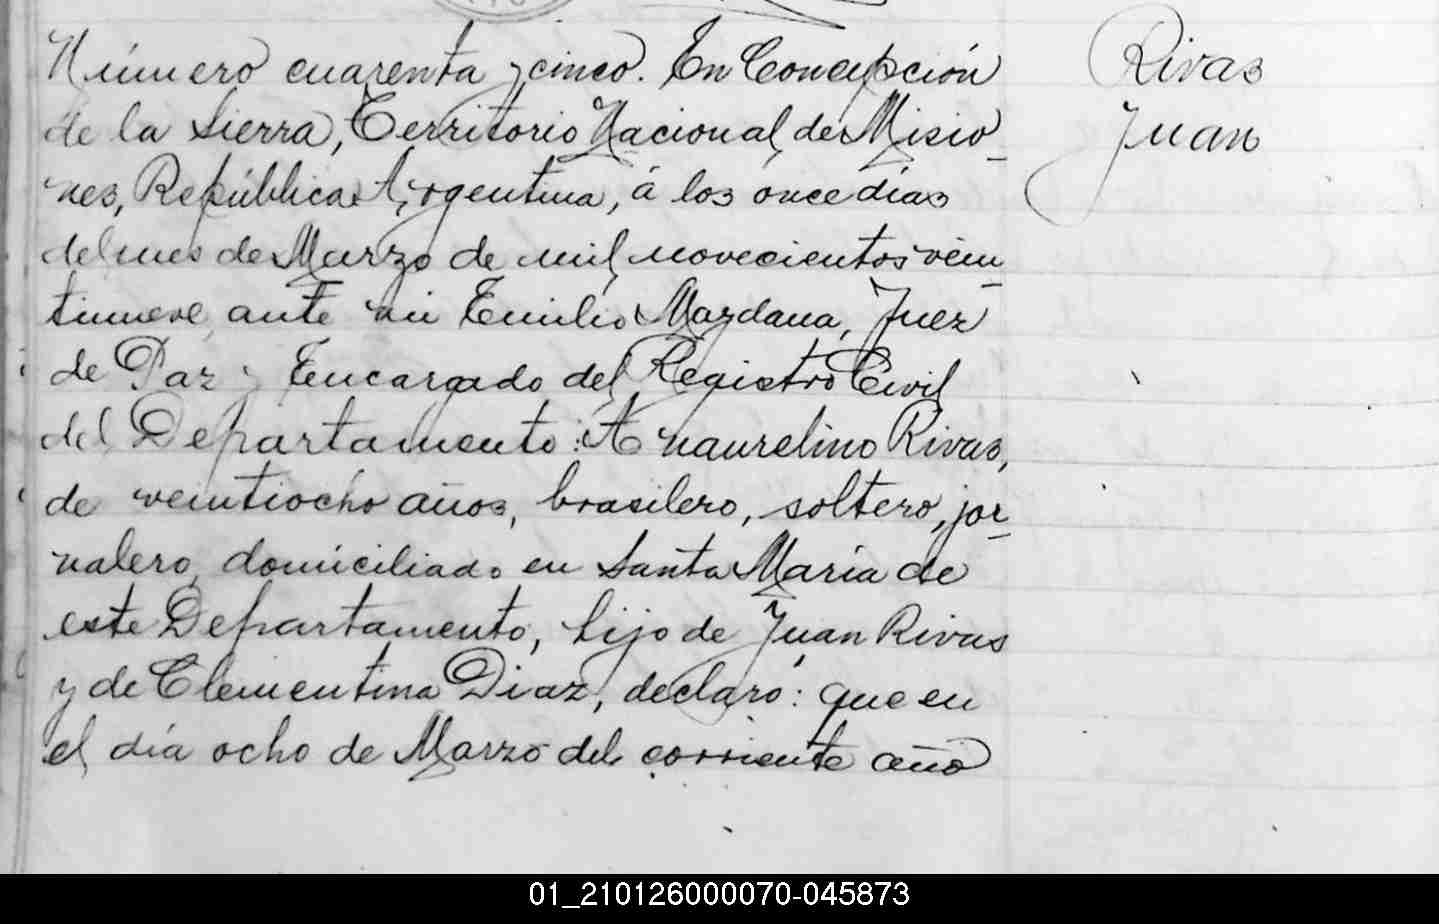 Número cuarenta y cinco. En Concepción
de la Sierra, Territorio Nacional de Misio_
nes, República Argentina, á los once días
del mes de Marzo de mil novecientos vein_
tinueve, ante mi Emilio Maydana, Juez
de Paz y Encargado del Registro Civil
del Departamento: A naurelino Rivas,
de veintiocho años, brasilero, soltero, jor_
nalero, domiciliado en Santa María de
este Departamento, hijo de Juan Rivas
y de Clementina Diaz, declaró: que en
el día ocho de Marzo del corriente año
Rivas
Juan
01_210126000070-045873